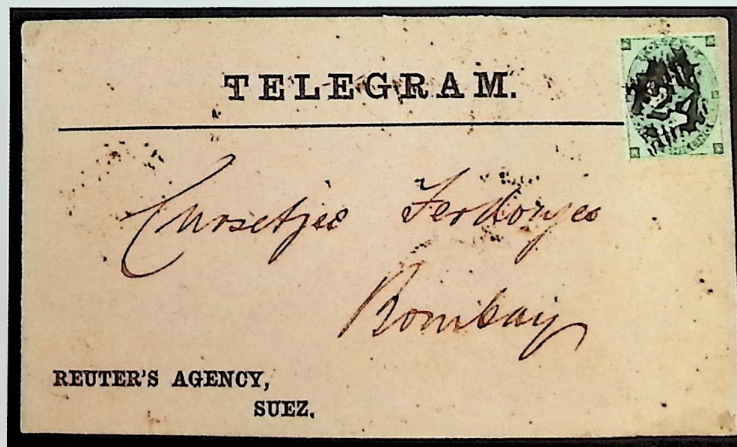 TELEGRAM.
Cursetjee Ferdonjee
Bombay
REUTER'S AGENCY,
SUEZ.